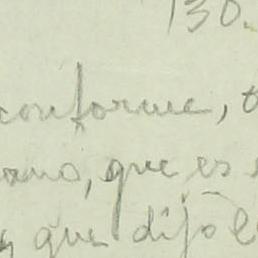 130.
conforme,
ano, que es
que dijo